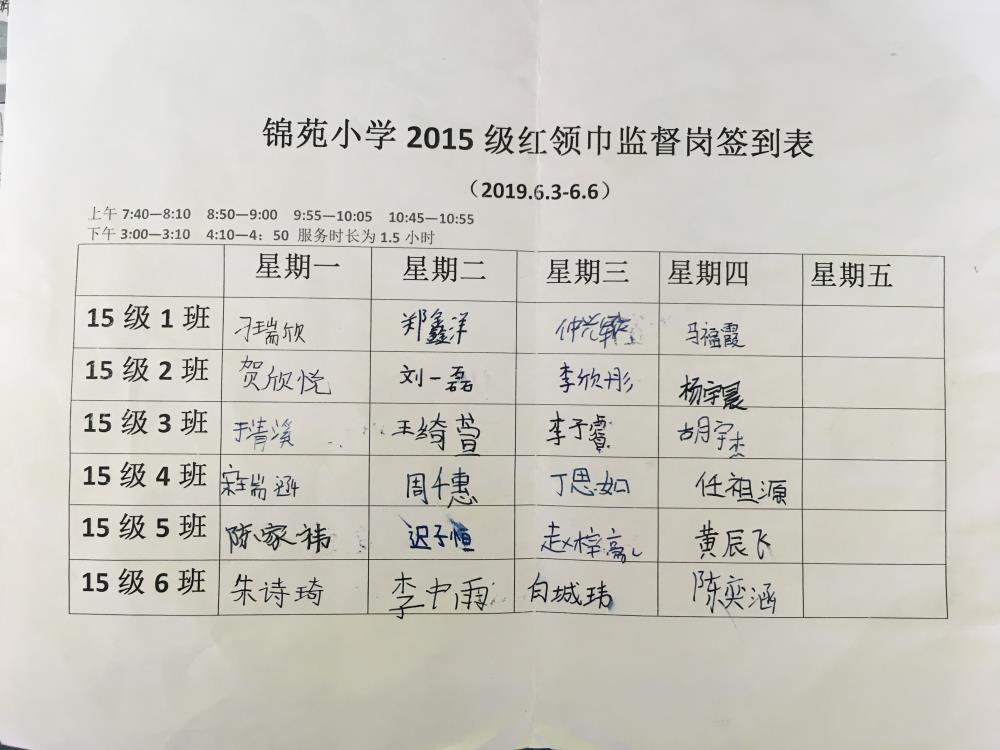 锦苑小学2015级红领巾监督岗签到表
（2019.6.3-6.6）
上午 7:40—8:10 8:50—9:00 9:55—10:05 10:45—10:55
下午 3:00—3:10 4:10—4：50 服务时长为 1.5 小时
星期一 星期二 星期三 星期四 星期五
15级1班 刁瑞欣 郑鑫洋 马福霞
15级2班 贺欣悦 刘一磊 李欣彤 杨宇晨
15级3班 于清溪 王绮萱 李予睿 胡宇杰
15级4班 宋瑞涵 周千惠 丁思如 任祖源
15级5班 陈家祎 迟子恒 赵梓 黄辰飞
15级6班 朱诗琦 李中雨 白城玮 陈奕涵